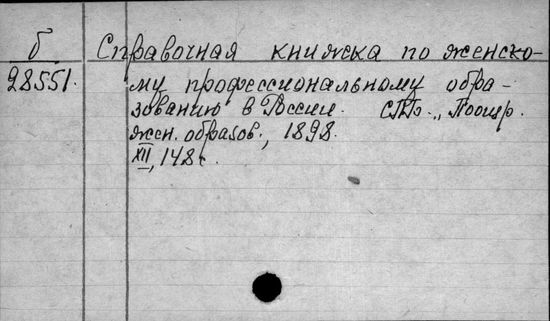 б
28551.
Справочная книжка по женско-
му профессиональному обра-
зованию в России. СПБ., Поощр.
жен. образов., 1898.
XII, 148 с.